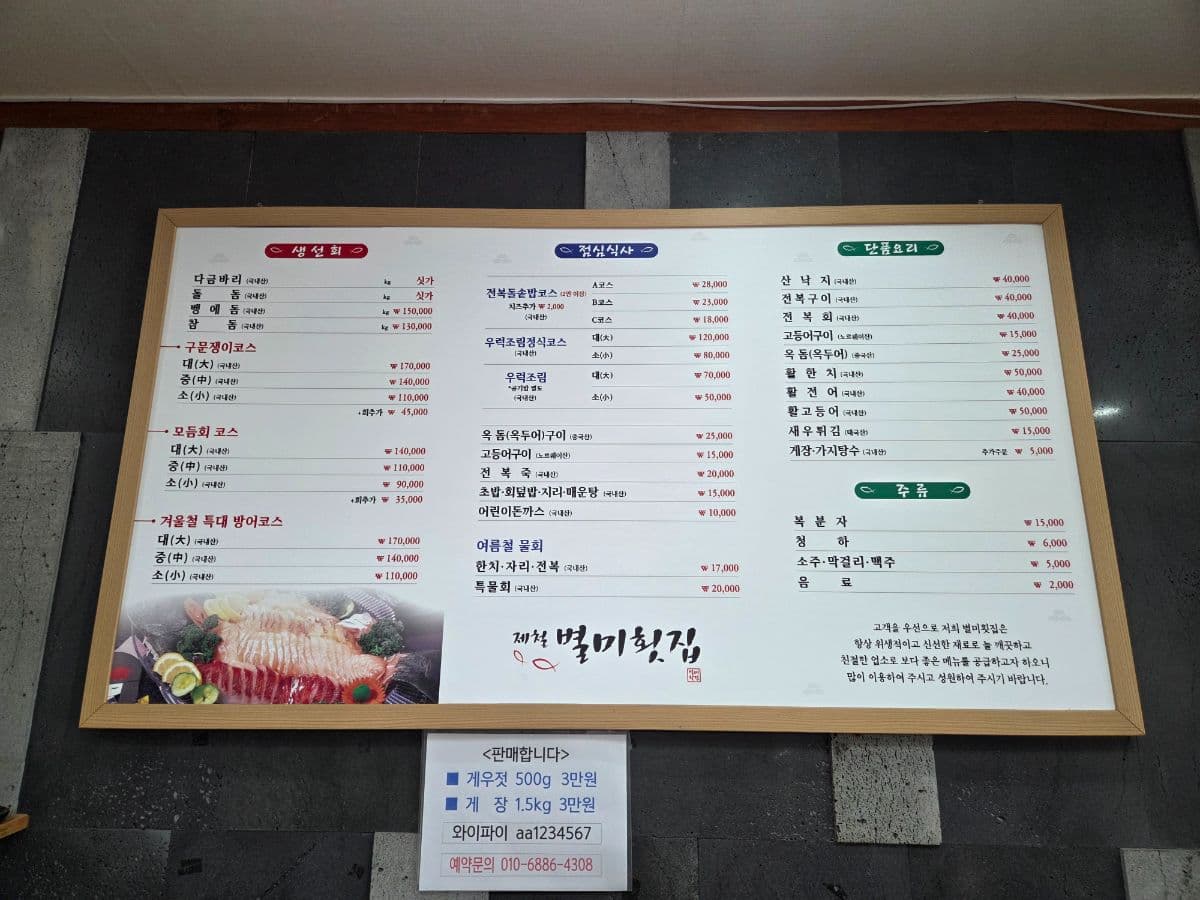 생선회
다금바리 (국내산) kg 싯가
돌 돔 (국내산) kg 싯가
뱅에돔 (국내산) kg ₩ 150,000
참 돔 (국내산) kg ₩ 130,000
구문쟁이코스
대(大) (국내산) ₩ 170,000
중(中) (국내산) ₩ 140,000
소(小) (국내산) ₩ 110,000
+회추가 ₩ 45,000
모듬회 코스
대(大) (국내산) ₩ 140,000
중(中) (국내산) ₩ 110,000
소(小) (국내산) ₩ 90,000
+회추가 ₩ 35,000
겨울철 특대 방어코스
대(大) (국내산) ₩ 170,000
중(中) (국내산) ₩ 140,000
소(小) (국내산) ₩ 110,000
점심식사
전복돌솥밥코스 (2인 이상)
치즈추가 ₩ 2,000
(국내산)
A코스 ₩ 28,000
B코스 ₩ 23,000
C코스 ₩ 18,000
우럭조림정식코스
(국내산)
대(大) ₩ 120,000
소(小) ₩ 80,000
우럭조림
*공기밥 별도
(국내산)
대(大) ₩ 70,000
소(小) ₩ 50,000
옥돔(옥두어)구이 (중국산) ₩ 25,000
고등어구이 (노르웨이산) ₩ 15,000
전 복 죽 (국내산) ₩ 20,000
초밥·회덮밥·지리·매운탕 (국내산) ₩ 15,000
어린이돈까스 (국내산) ₩ 10,000
여름철 물회
한치·자리·전복 (국내산) ₩ 17,000
특물회 (국내산) ₩ 20,000
제철 별미횟집
단품요리
산 낙 지 (국내산) ₩ 40,000
전복구이 (국내산) ₩ 40,000
전 복 회 (국내산) ₩ 40,000
고등어구이 (노르웨이산) ₩ 15,000
옥돔(옥두어) (중국산) ₩ 25,000
활 한 치 (국내산) ₩ 50,000
활 전 어 (국내산) ₩ 40,000
활고등어 (국내산) ₩ 50,000
새우튀김 (태국산) ₩ 15,000
게장·가지탕수 (국내산) 추가주문 ₩ 5,000
주류
복 분 자 ₩ 15,000
청 하 ₩ 6,000
소주·막걸리·맥주 ₩ 5,000
음 료 ₩ 2,000
고객을 우선으로 저희 별미횟집은
항상 위생적이고 신선한 재료로 늘 깨끗하고
친절한 업소로 보다 좋은 메뉴를 공급하고자 하오니
많이 이용하여 주시고 성원하여 주시기 바랍니다.
<판매합니다>
■ 게우젓 500g 3만원
■ 게 장 1.5kg 3만원
와이파이 aa1234567
예약문의 010-6886-4308